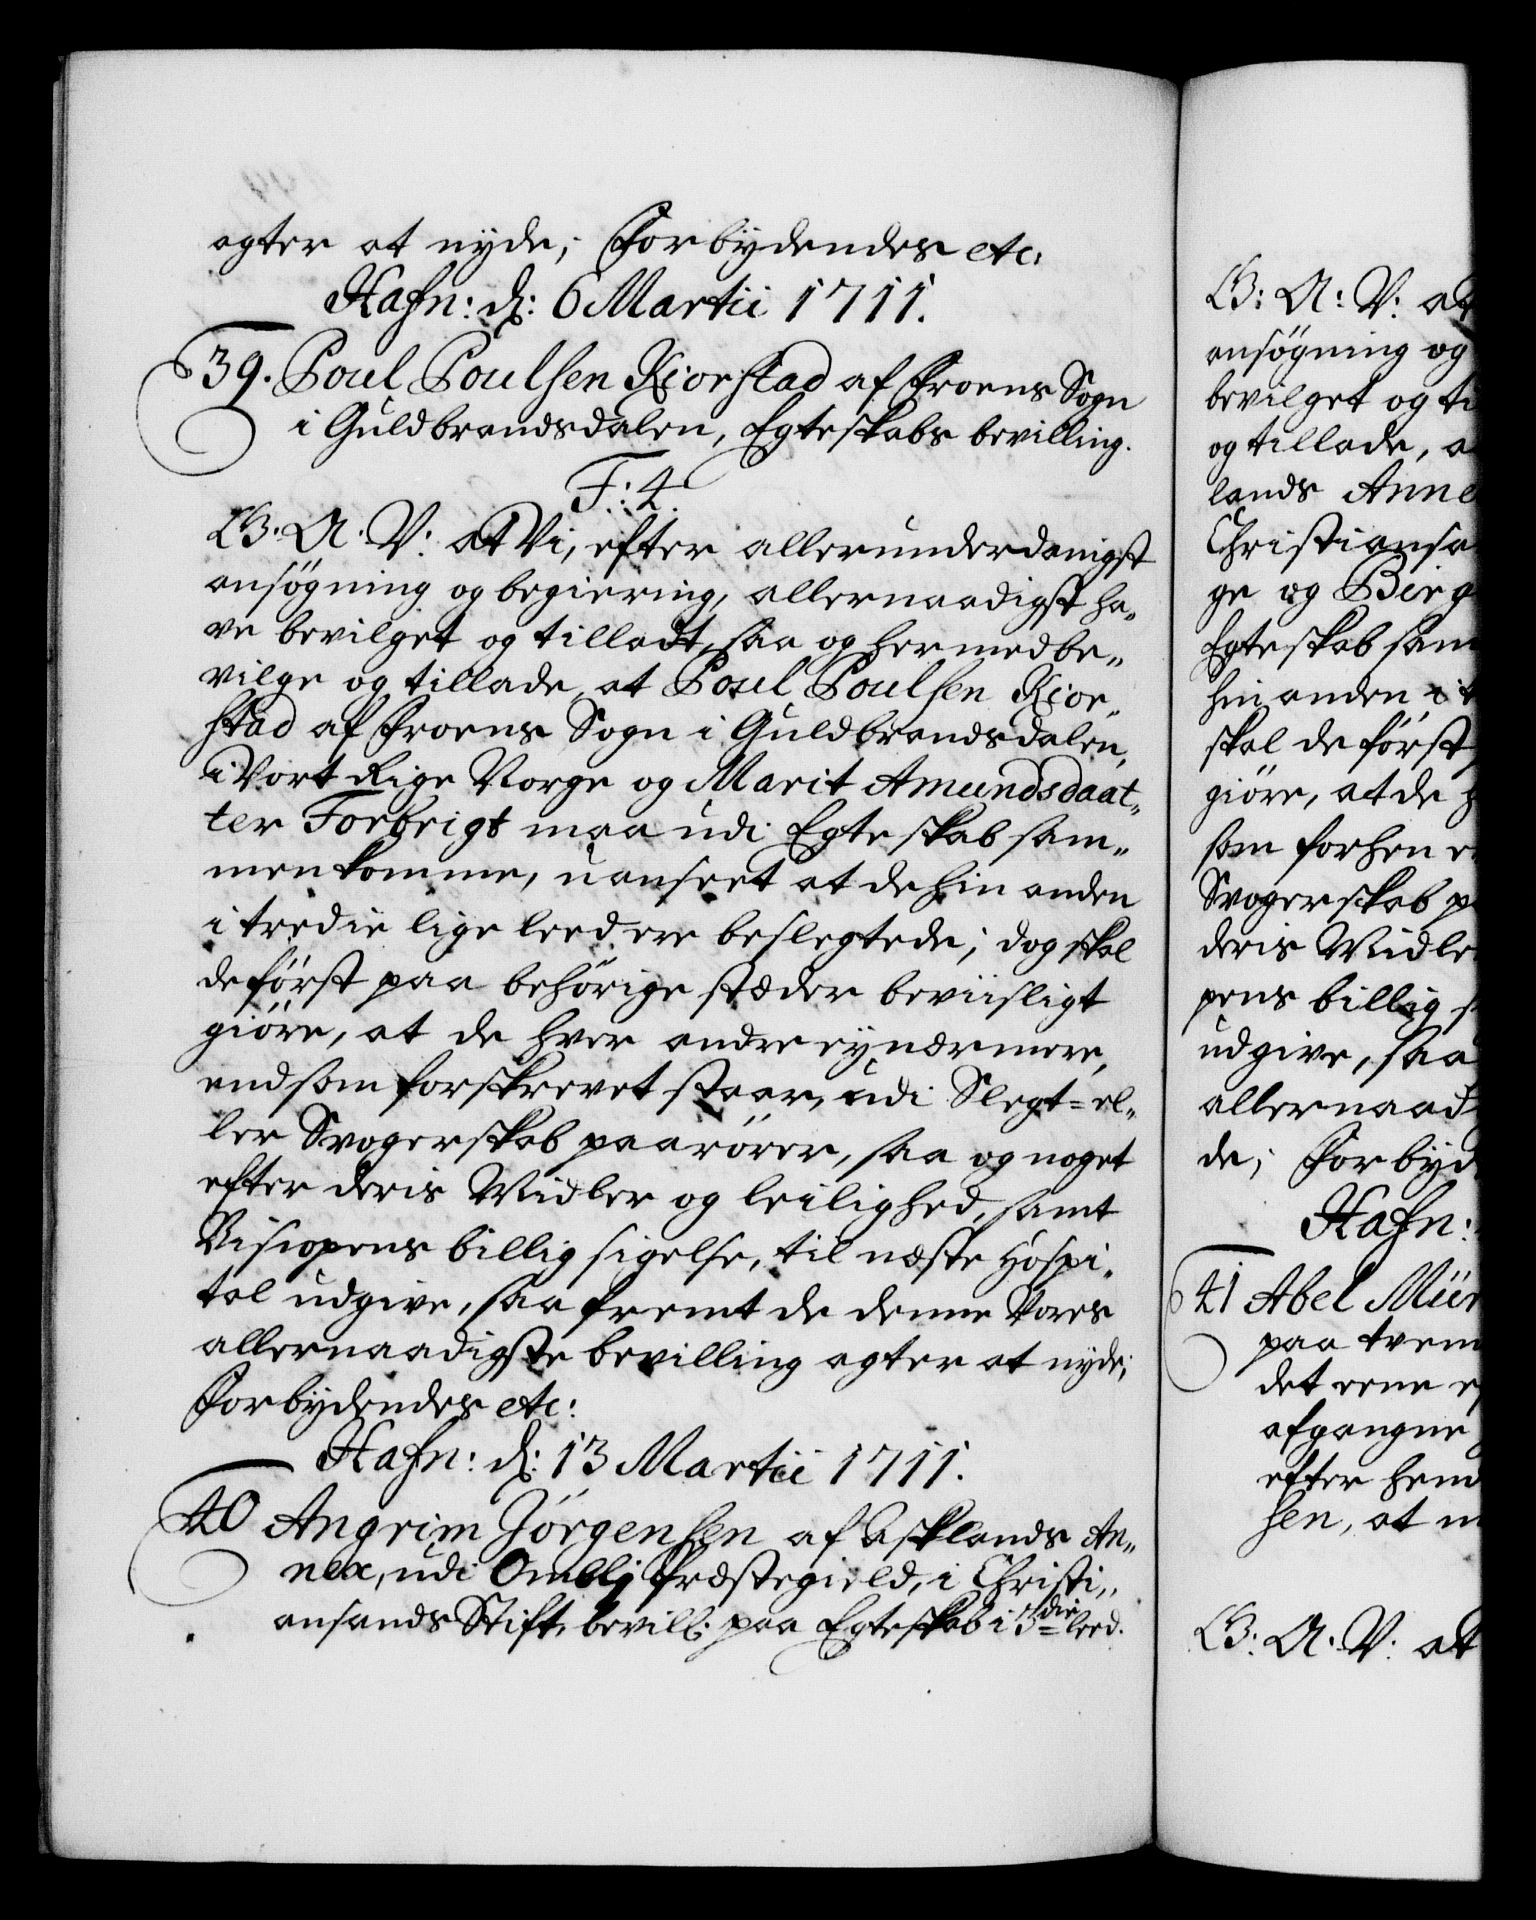 agter at nyde; Forbydendes etc:
Hafn: d: 6 Martii 1711.
39. Poul Poulsen Kiorstad af Froens Sogn
i Guldbrandsdalen, Egteskabs bevilling.
F: 4.
G: A: V: at Vi, efter allerunderdanigst
ansögning og begiering, allernaadigst ha„
ve bevilget og tilladt, saa og hermed be„
vilge og tillade, at Poul Poulsen Kior„
stad af Froens Sogn i Guldbrandsdalen,
i Vort Rige Norge og Marit Amundsdaat„
ter Forbrigt maa udi Egteskab sam„
menkomme, uanseet at de hin anden
i tredie lige leed ere beslegtede; dog skal
de först paa behörige stæder beviisligt
giöre, at de hver andre ey nærmere,
end som forskrevet staar, udi Slegt= el„
ler Svogerskab paarörer, saa og noget
efter deris Midler og leilighed, samt
Bispens billig sigelse, til næste Hospi„
tal udgive, saa fremt de denne Vores
allernaadigste bevilling agter at nyde;
Forbydendes etc:
Hafn: d: 13 Martii 1711.
40 Angrim Jörgensen af Asklands An„
nex, udi Omblj Præstegield, i Christi„
ansands Stift, bevill: paa Egteskab i 3die leed.
G: A: V: at
ansögning og
bevilget og ti
og tillade, a
lands Anne
Christiansa
ge og Birg
Egteskab sam
hin anden i t
skal de först
giöre, at de h
som forhen e
Svogerskab p
deris Midle
pens billig s
udgive, saa
allernaad
de; Forbyd
Hafn:
41 Abel Mün
paa tven
det eene ef
afgangne
efter hend
sen, at m
G: A: V: at